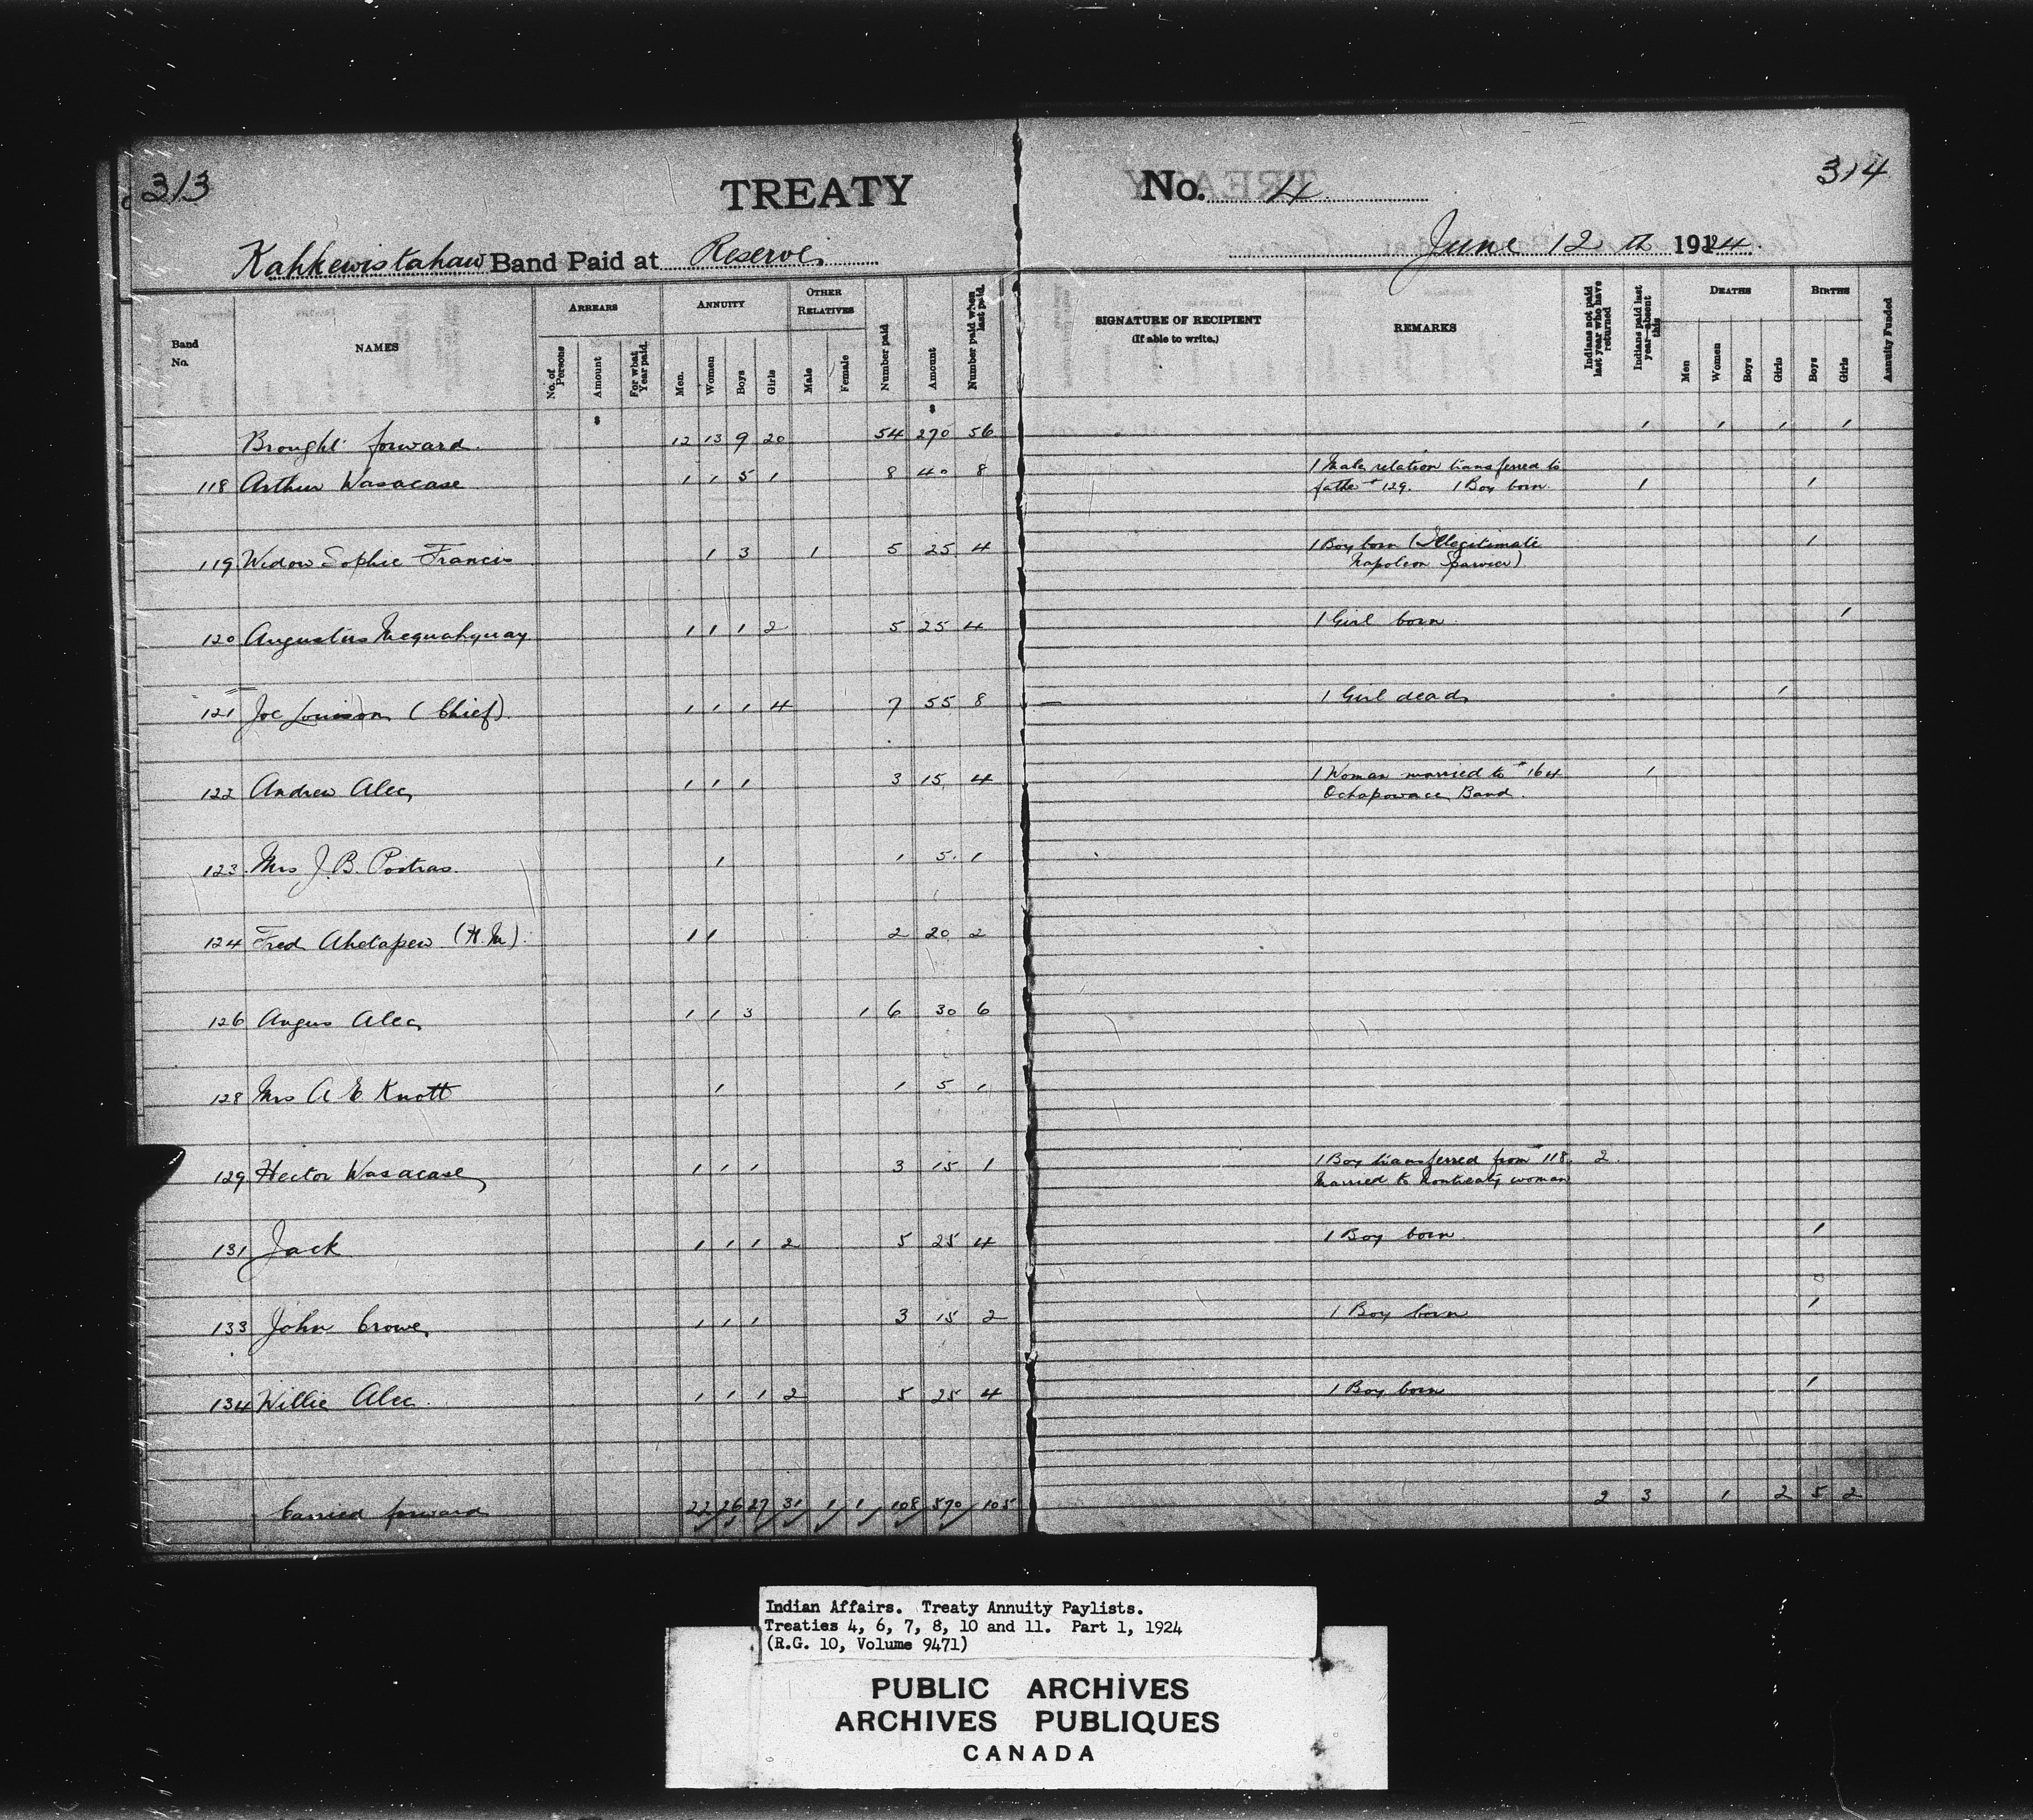 313
TREATY
No. 4
314
Kahkewistahaw Band Paid at Reserve
June 12th 1924.
Band No.
NAMES
ARREARS
No. of Persons
Amount
For what Year paid.
ANNUITY
Men.
Women
Boys
Girls
OTHER RELATIVES
Male
Female
Number paid
Amount
Number paid when last paid.
SIGNATURE OF RECIPIENT
(If able to write.)
REMARKS
Indians not paid last year who have returned
Indians paid last year—absent this
DEATHS
Men
Women
Boys
Girls
BIRTHS
Boys
Girls
Annuity Funded
$ $
Brought forward. 12 13 9 20 54 270 56 1 1 1 1
118 Arthur Wasacase 1 1 5 1 8 40 8 1 Male relation transferred to
father #129. 1 Boy born. 1 1
119 Widow Sophie Francis 1 3 1 5 25 4 1 Boy born (Illegitimate
Napoleon) 1
120 Augustus Mequahquay 1 1 1 2 5 25 4 1 Girl born 1
121 Joe Louison (Chief). 1 1 1 4 7 55 8 1 Girl dead 1
122 Andrew Alec 1 1 1 3 15 4 1 Woman married to #164 1
Ochapowace Band.
123 Mrs J. B. Poitras. 1 1 5. 1
124 Fred Ahetapew (H.M). 1 1 2 20 2
126 Angus Alec 1 1 3 1 6 30 6
128 Mrs A E Knott 1 1 5 1
129 Hector Wasacase 1 1 1 3 15 1 1 Boy transferred from #118. 2.
Married to Nontreaty woman
131 Jack 1 1 1 2 5 25 4 1 Boy born. 1
133 John Crowe 1 1 1 3 15 2 1 Boy born 1
134 Willie Alec. 1 1 1 2 5 25 4 1 Boy born 1
Carried forward 22 26 27 31 1 1 108 570 105 2 3 1 2 5 2
Indian Affairs. Treaty Annuity Paylists.
Treaties 4, 6, 7, 8, 10 and 11. Part 1, 1924
(R.G. 10, Volume 9471)
PUBLIC ARCHIVES
ARCHIVES PUBLIQUES
CANADA